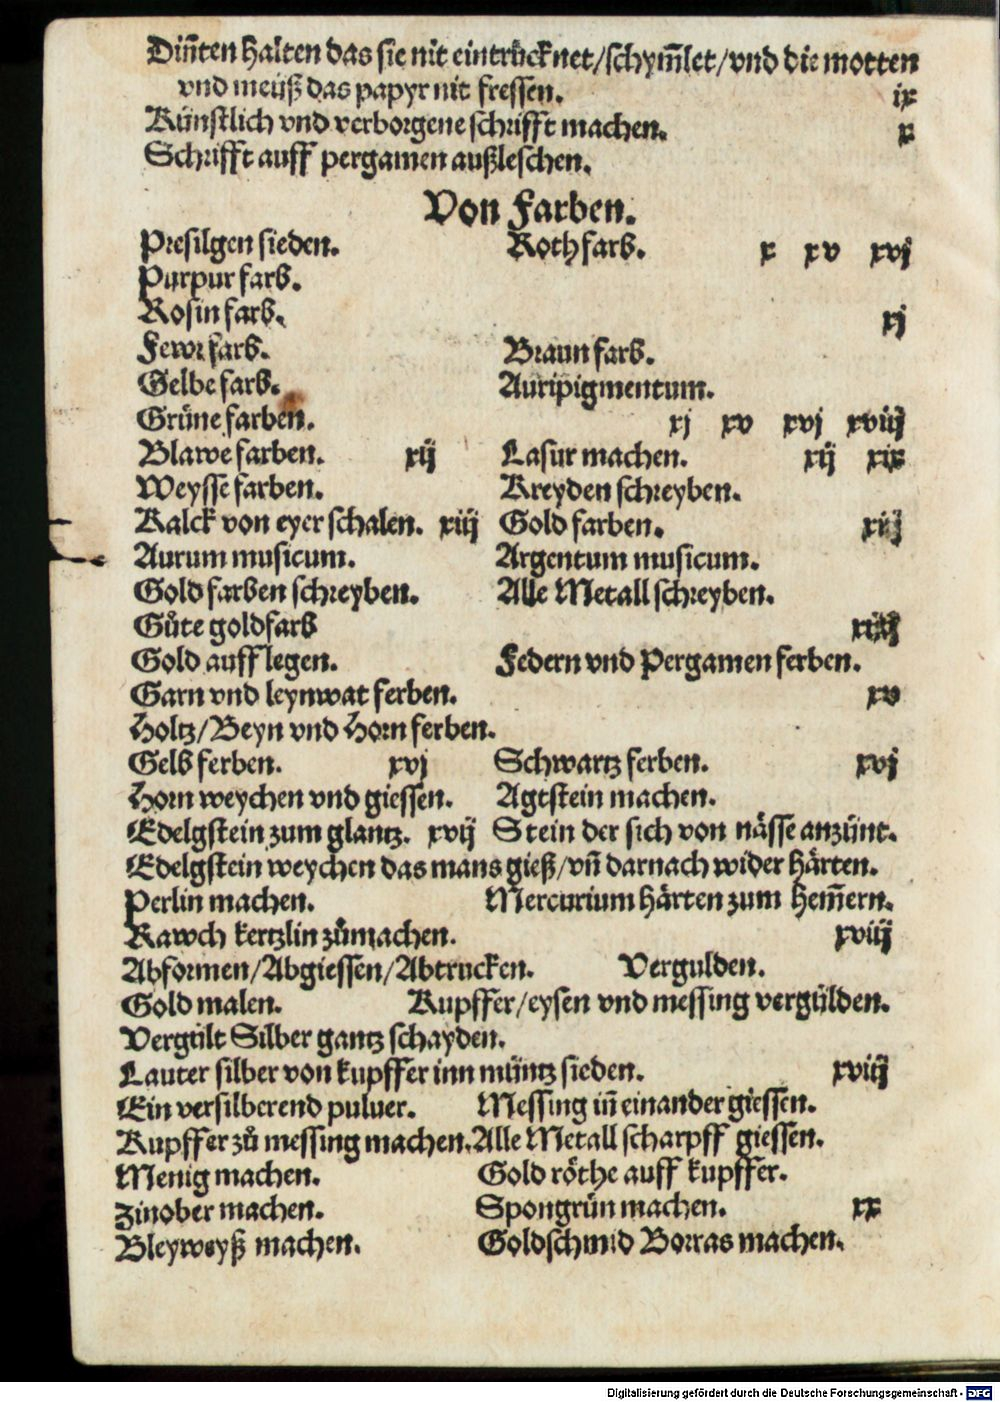 Diñten halten das sie nit eintrücknet/schym̃let/vnd die motten
vnd meüß das papyr nit fressen. ix
Künstlich vnd verborgene schrifft machen. x
Schrifft auff pergamen außleschen.
Von Farben.
Presilgen sieden. Roth farb. x xv xvj
Purpur farb.
Rosin farb. xj
Fewr farb. Braun farb.
Gelbe farb. Auripigmentum.
Grüne farben. xj xv xvj xviij
Blawe farben. xij Lasur machen. xij xix
Weysse farben. Kreyden schreyben.
Kalck von eyer schalen. xiij Gold farben. xiij
Aurum musicum. Argentum musicum.
Gold farben schreyben. Alle Metall schreyben.
Gůte goldfarb xiiij
Gold auff legen. Federn vnd Pergamen ferben.
Garn vnd leynwat ferben. xv
Holtz/Beyn vnd Horn ferben.
Gelb ferben. xvj Schwartz ferben. xvj
Horn weychen vnd giessen. Agtstein machen.
Edelgstein zum glantz. xvij Stein der sich von nässe anzünt.
Edelgstein weychen das mans gieß/vñ darnach wider härten.
Perlin machen. Mercurium härten zum hem̃ern.
Rawch kertzlin zůmachen. xviij
Abformen/Abgiessen/Abtrucken. Vergulden.
Gold malen. Kupffer/eysen vnd messing vergülden.
Vergült Silber gantz schayden.
Lauter silber von kupffer inn müntz sieden. xviiij
Ein versilberend puluer. Messing iñ einander giessen.
Kupffer zů messing machen. Alle Metall scharpff giessen.
Menig machen. Gold röthe auff kupffer.
Zinober machen. Spongrün machen. xx
Bleyweyß machen. Goldschmid Borras machen.
Digitalisierung gefördert durch die Deutsche Forschungsgemeinschaft - DFG